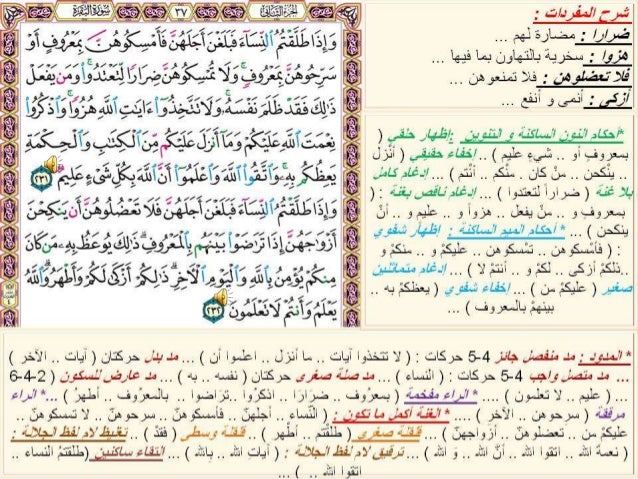 شرح المفردات :
ضرارا : مضارة لهم ...
هزوا : سخرية بالتهاون بما فيها ...
فلا تعضلوهن : فلا تمنعوهن ...
أزكى : أنمى و أنفع ...
الجزء الثاني ٣٧ سورة البقرة
وَإِذَا طَلَّقْتُمُ ٱلنِّسَآءَ فَبَلَغْنَ أَجَلَهُنَّ فَأَمْسِكُوهُنَّ بِمَعْرُوفٍ أَوْ
سَرِّحُوهُنَّ بِمَعْرُوفٍ وَلَا تُمْسِكُوهُنَّ ضِرَارًا لِّتَعْتَدُوا۟ وَمَن يَفْعَلْ
ذَٰلِكَ فَقَدْ ظَلَمَ نَفْسَهُۥ وَلَا تَتَّخِذُوٓا۟ ءَايَٰتِ ٱللَّهِ هُزُوًا وَٱذْكُرُوا۟
نِعْمَتَ ٱللَّهِ عَلَيْكُمْ وَمَآ أَنزَلَ عَلَيْكُم مِّنَ ٱلْكِتَٰبِ وَٱلْحِكْمَةِ
يَعِظُكُم بِهِۦ وَٱتَّقُوا۟ ٱللَّهَ وَٱعْلَمُوٓا۟ أَنَّ ٱللَّهَ بِكُلِّ شَىْءٍ عَلِيمٌ ٢٣١
وَإِذَا طَلَّقْتُمُ ٱلنِّسَآءَ فَبَلَغْنَ أَجَلَهُنَّ فَلَا تَعْضُلُوهُنَّ أَن يَنكِحْنَ
أَزْوَٰجَهُنَّ إِذَا تَرَٰضَوْا۟ بَيْنَهُم بِٱلْمَعْرُوفِ ذَٰلِكَ يُوعَظُ بِهِۦ مَن كَانَ
مِنكُمْ يُؤْمِنُ بِٱللَّهِ وَٱلْيَوْمِ ٱلْءَاخِرِ ذَٰلِكُمْ أَزْكَىٰ لَكُمْ وَأَطْهَرُ وَٱللَّهُ
يَعْلَمُ وَأَنتُمْ لَا تَعْلَمُونَ ٢٣٢
*أحكام النون الساكنة و التنوين :إظهار حلقي (
بمعروفٍ أو .. شيءٍ عليم ) .. إخفاء حقيقي ( أنْزل
.. ينْكحن .. منْ كان . منْكم أنْتم ) ... إدغام كامل
بلا غنة ( ضراراً لتعتدوا ) ... إدغام ناقص بغنة : (
بمعروفٍ و ... منْ يفعل .. هزواً و .. عليم و .. أنْ
ينكحن ) ... * أحكام الميم الساكنة : إظهار شفوي
: ( فأمْسكوهن .. تمْسكوهن .. عليكمْ و .. منكمْ و
..ذلكمْ أزكى .. لكمْ و .. أنتمْ لا ) ... إدغام متماثلين
صغير ( عليكمْ من ) ... إخفاء شفوي ( يعظكمْ به ..
بينهمْ بالمعروف ) ...
* المدود : مد منفصل جائز 4-5 حركات : ( لا تتخذوا آيات .. ما أنزل .. اعلموا أن ) ... مد بدل حركتان ( آيات .. الآخر )
... مد متصل واجب 4-5 حركات : ( النساء ) ... مد صلة صغرى حركتان ( نفسه .. به ) ... مد عارض للسكون ( 2-4-6
... ( عليم .. لا تعلمون ) .... * الراء مفخمة ( بمعروف .. ضرارا .. اذكروا .. تراضوا .. بالمعروف .. أطهر ) ...* الراء
مرققة ( سرحوهن .. الآخر ) .... * الغنة أكمل ما تكون : ( النّساء .. أجلهنّ .. فأمسكوهنّ .. سرحوهنّ .. لا تمسكوهنّ ..
عليكم من .. تعضلوهنّ .. أزواجهنّ ) ... * قلقلة صغرى ( طلقتم .. أطهر ) .. قلقلة وسطى ( فقدْ ) .. تغليظ لام لفظ الجلالة :
( نعمة الله .. اتقوا الله .. أنَّ الله .. وَ الله ) ... ترقيق لام لفظ الجلالة : ( آيات الله .. بالله ) ... التقاء ساكنين (طلقتمُ النساء ..
اتقوا الله .. ) ...